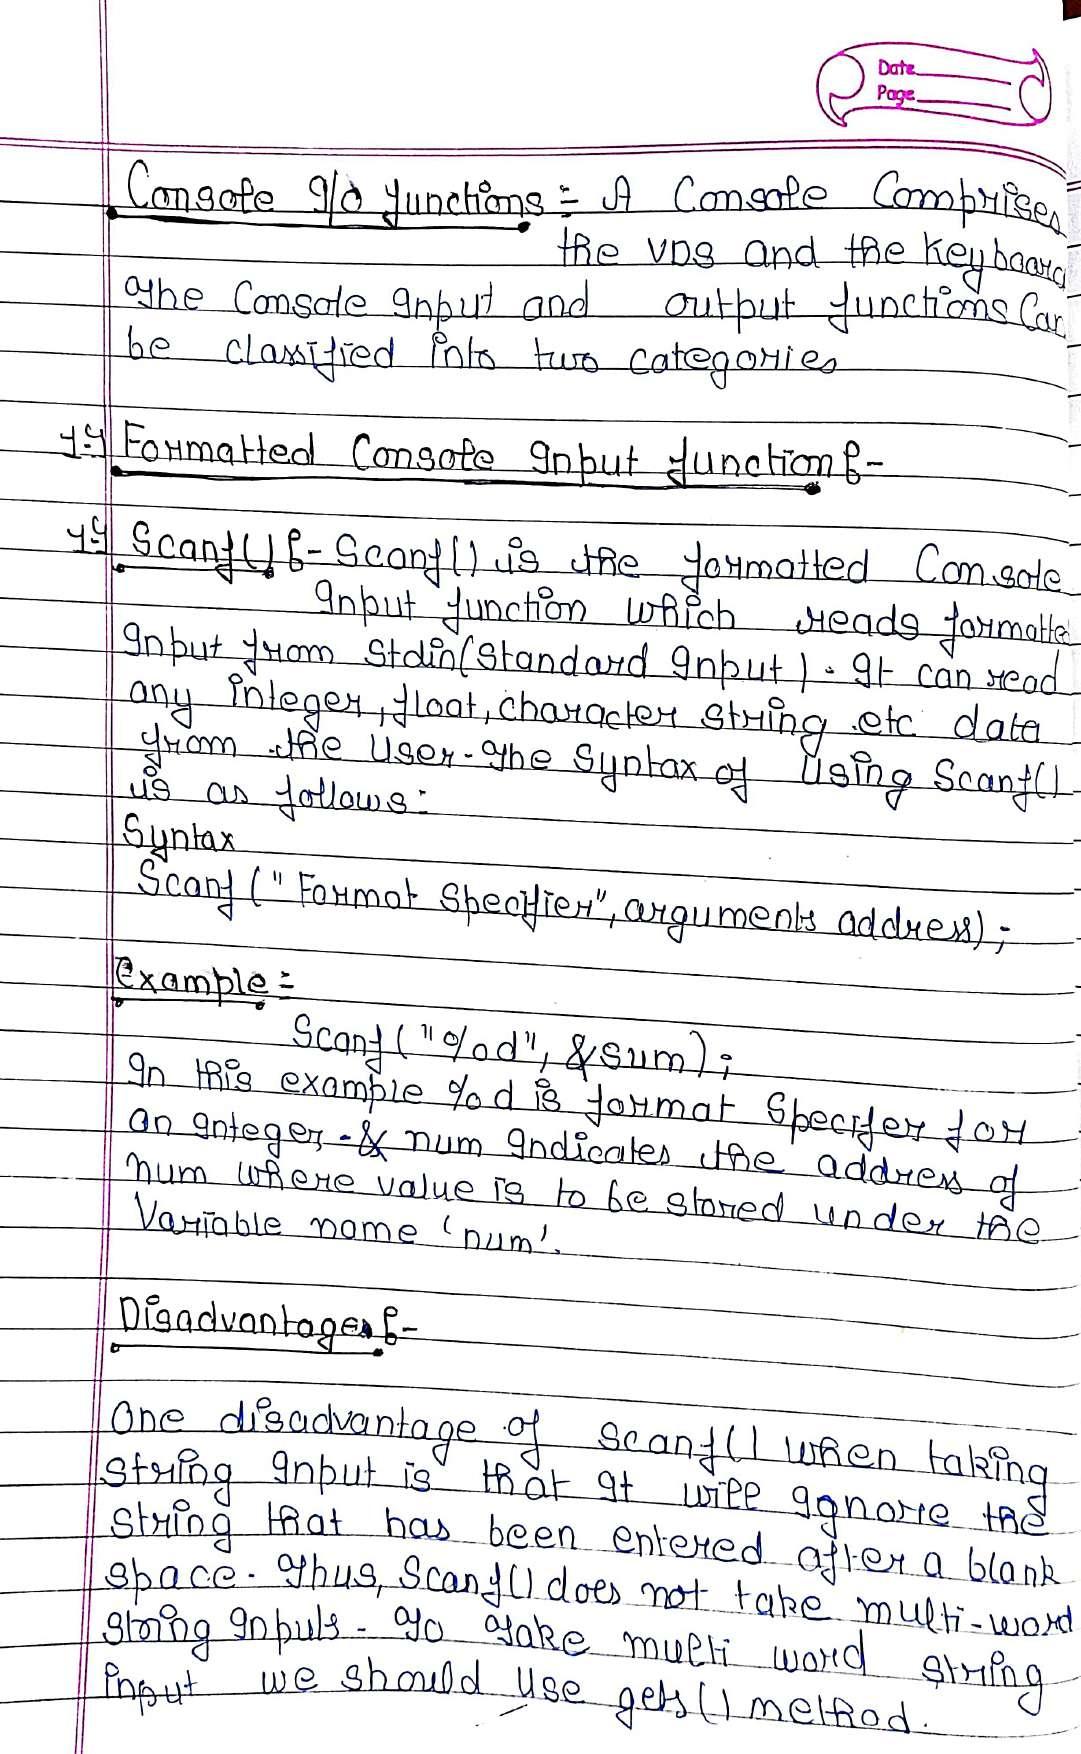 Date
Page
Console I/O functions :- A Console Comprises
the VDS and the Keyboard
The Console Input and output functions Can
be classified into two categories
1:- Formatted Console Input function :-
1:- Scanf() :- Scanf() is the formatted Console
Input function which reads formatte
Input from Stdin(Standard Input). It can read
any integer, float, character string etc data
from the User. The Syntax of Using Scanf()
is as follows:
Syntax
Scanf ("Format Specifier", arguments address);
Example :-
Scanf ("%d", &sum);
In this example %d is format Specifer for
an Integer, & num Indicates the address of
num where value is to be stored under the
Variable name 'num'.
Disadvantages :-
One disadvantage of scanf() when taking
string Input is that It will Ignore the
string that has been entered after a blank
space. Thus, Scanf() does not take multi-word
string Inputs. To Take multi word string
input we should Use gets() method.